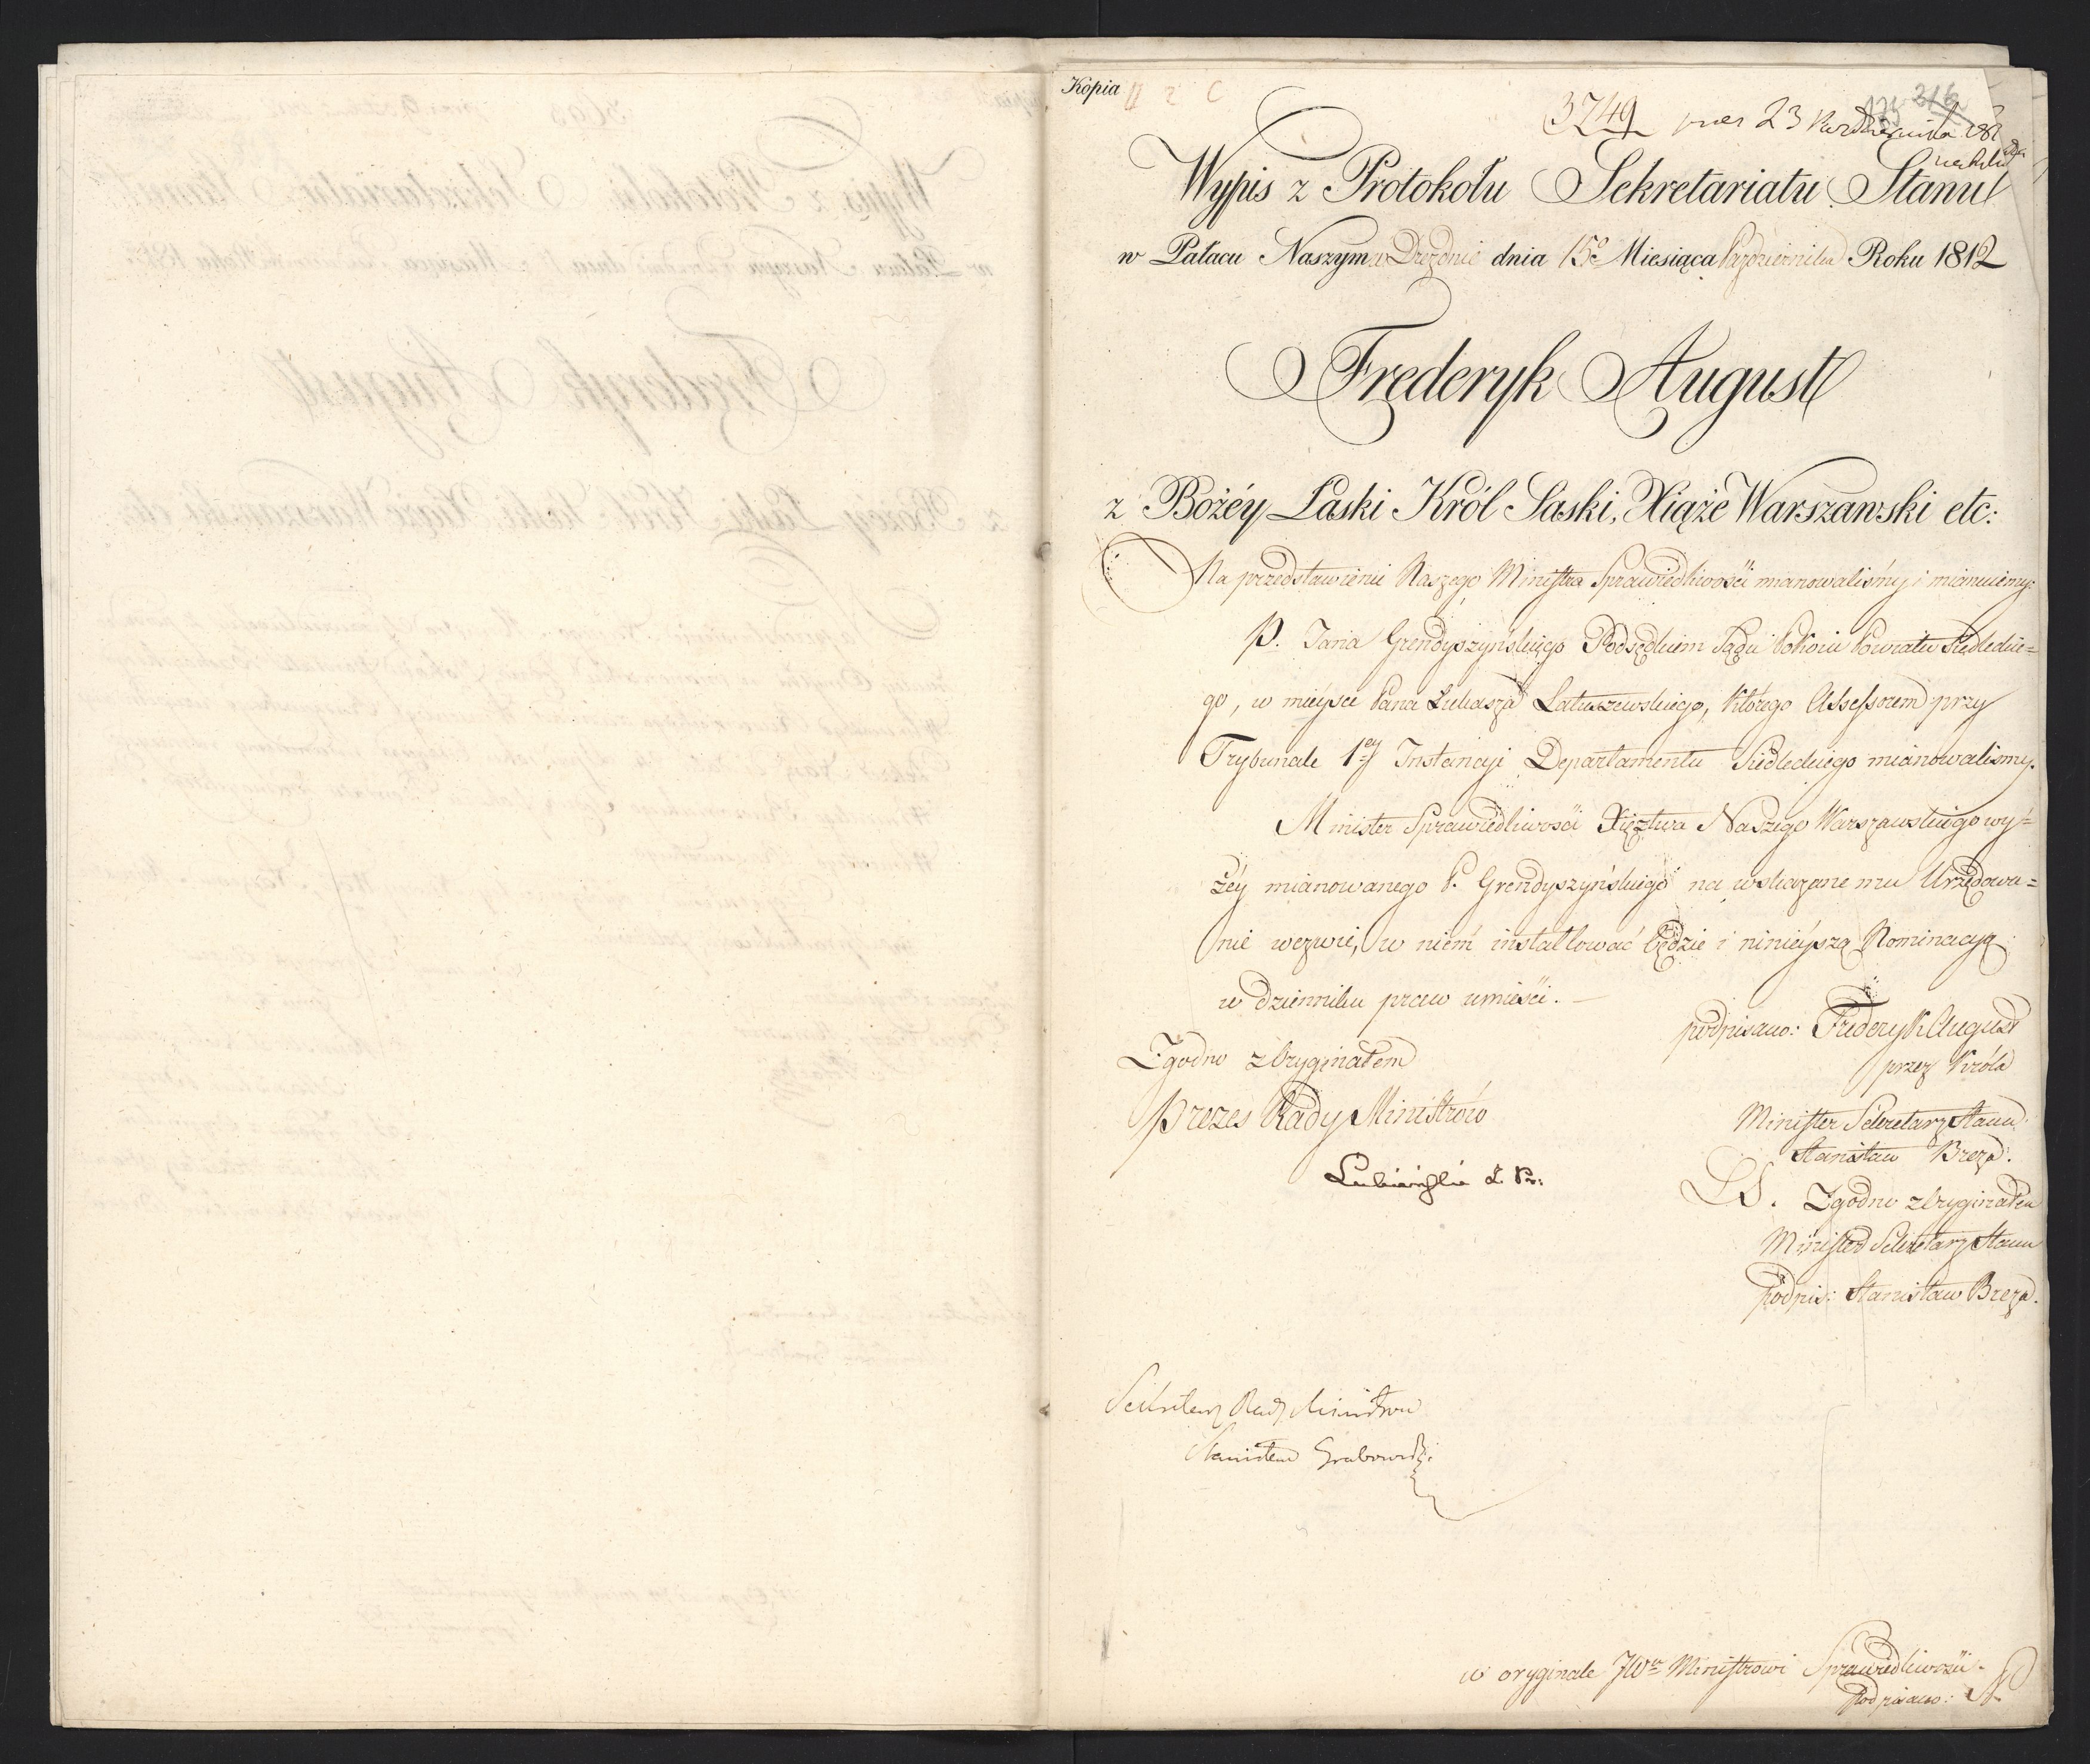 Kopia
3749 pres 23 Października 1812
Wypis z Protokołu Sekretariatu Stanu
w Pałacu Naszym w Dreznie dnia 15o Miesiąca Października Roku 1812
Frederyk August
z Bożéy Łaski Król Saski, Xiąże Warszawski etc:
Na przedstawienie Naszego Ministra Sprawiedliwości mianowaliśmy i mianuiemy:
P. Jana Grendyszyńskiego Podsędkiem Sądu Pokoiu Powiatu Siedleckie=
go, w mieysce Pana Łukasza Latuszewskiego, którego Assessorem przy
Trybunale 1ey Instancyi Departamentu Siedleckiego mianowalismy.
Minister Sprawiedliwości Xięztwa Naszego Warszawskiego wy=
żéy mianowanego P. Grendyszyńskiego na wskazane mu Urzędowa=
nie wezwie, w niem installować będzie i ninieyszą Nominacyą
w dzienniku praw umieści. —
podpisano: Frideryk August
Zgodno z Oryginałem
przez Króla
Prezes Rady Ministrów
Minister Sekretarz Stanu
Stanisław Breza.
LS. Zgodno z Oryginałem
Minister Sekretarz Stanu
podpis: Stanisław Breza.
Sekretarz Rady Ministrów
Stanisław Grabowski
w oryginale JWu Ministrowi Sprawiedliwości.
Podpisano: